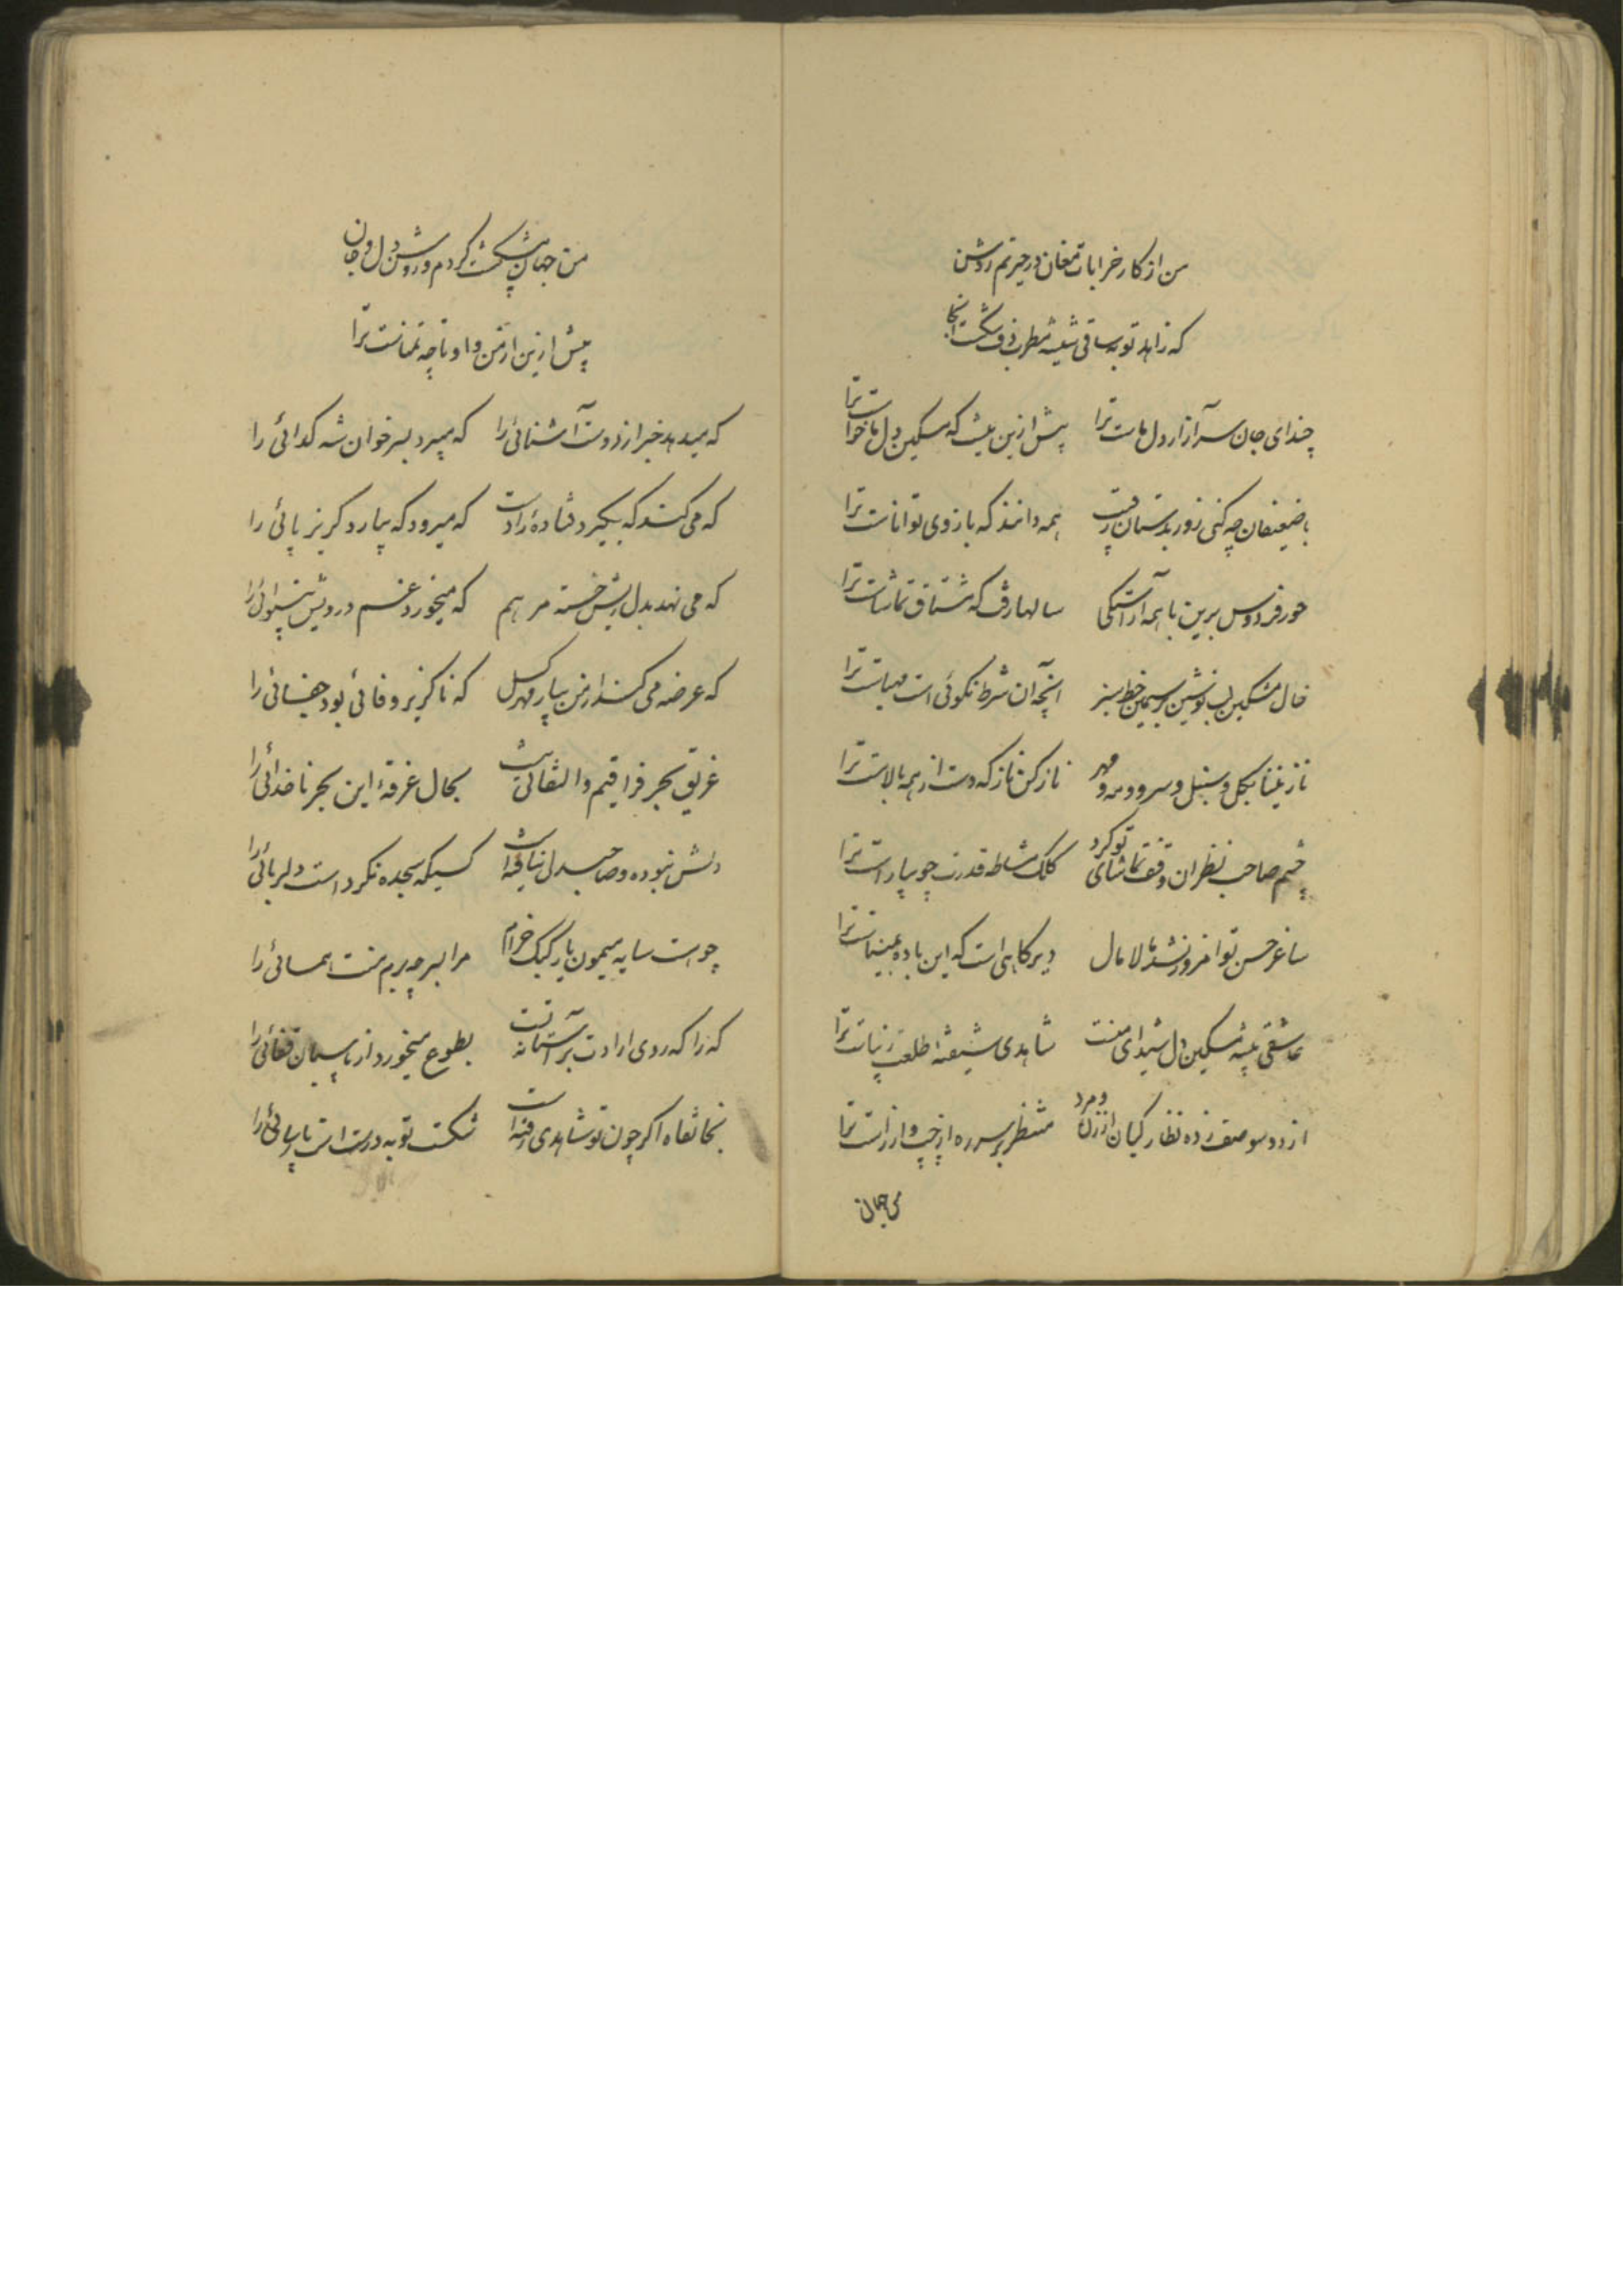 من از کار خرابات مغان در حیرتم روشن
که زاهد توبه ساقی شیشه مطرب دف شکست آنجا
چند ای جان سر آزار دل ماست ترا پیش ازین بیش که مسکین دل ما خواست ترا
با ضعیفان چه کنی زور بدستان رقیب همه دانند که بازوی تواناست ترا
حور فردوس برین با همه آراستگی سالها رفت که مشتاق تماشاست ترا
خال مشکین لب نوشین بر سیمین خط سبز آنچه آن شرط نکوئی است مهیاست ترا
نازنینا بگل و سنبل و سرو و مه و مهر ناز کن ناز که دست از همه بالاست ترا
چشم صاحب نظران وقف تماشای تو کرد کلک مشاطه قدرت چو بیاراست ترا
ساغر حسن تو امروز نشد مالامال دیرگاهی است که این باده بمیناست ترا
عاشقی پیشه مسکین دل شیدای منت شاهدی شیفته طلعت زیباست ترا
از دو سو صف زده نظارگیان از زن و مرد منتظر بر سر ره از چپ و از راست ترا
من جهان
من جهان پیشکشت کردم و روشن دل و جان
پیش ازین از من و او تا چه تمناست ترا
که میدهد خبر از دوست آشنائی را که میبرد بسر خوان شه گدائی را
که می کند که بگیرد فتاده را دست که میرود که بیارد گریز پائی را
که می نهد بدل ریش خسته مرهم که میخورد غم درویش بینوائی را
که عرضه می کند از من بیار مهر گسل که ناگزیر وفائی بود جفائی را
غریق بحر فراقیم و التفاتی نیست بحال غرقه این بحر ناخدائی را
دلش نبوده و صاحبدل نیافته است کسیکه سجده نکرد است دلربائی را
چو هست سایه میمون یار کبک خرام مرا بسر چه برم منت همائی را
که را که روی ارادت بر آستانه تست بطوع میخورد از پاسبان قفائی را
بخانقاه اگر چون تو شاهدی رفته است شکست توبه درست است پارسائی را